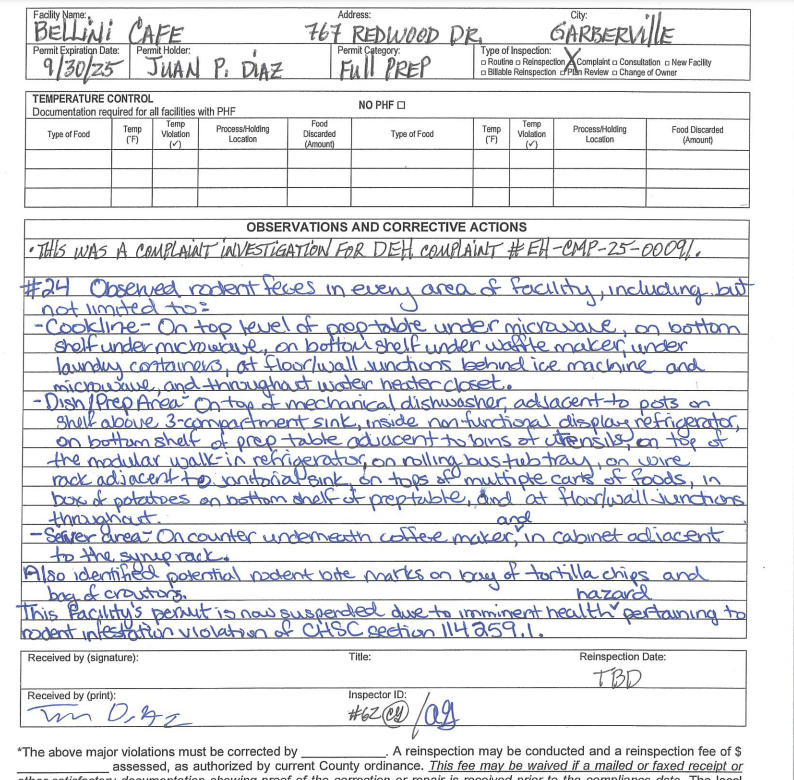 Facility Name: Address: City:
BELLINI CAFE 767 REDWOOD DR. GARBERVILLE
Permit Expiration Date: Permit Holder: Permit Category: Type of Inspection:
9/30/25 JUAN P. DIAZ FULL PREP
□ Routine □ Reinspection Complaint □ Consultation □ New Facility
□ Billable Reinspection □ Plan Review □ Change of Owner
TEMPERATURE CONTROL NO PHF □
Documentation required for all facilities with PHF
Type of Food Temp (°F) Temp Violation (✓) Process/Holding Location Food Discarded (Amount) Type of Food Temp (°F) Temp Violation (✓) Process/Holding Location Food Discarded (Amount)
OBSERVATIONS AND CORRECTIVE ACTIONS
• THIS WAS A COMPLAINT INVESTIGATION FOR DEH COMPLAINT # EH-CMP-25-00091.
#24 Observed rodent feces in every area of facility, including but
not limited to:
- Cookline - On top level of prep table under microwave, on bottom
shelf under microwave, on bottom shelf under waffle maker, under
laundry containers, at floor/wall junctions behind ice machine and
microwave, and throughout water heater closet.
- Dish/Prep Area - On top of mechanical dishwasher, adjacent to pots on
shelf above 3-compartment sink, inside non-functional display refrigerator,
on bottom shelf of prep table adjacent to bins of utensils, on top of
the modular walk-in refrigerator, on rolling bus tub tray, on wire
rack adjacent to janitorial sink, on tops of multiple cans of foods, in
box of potatoes on bottom shelf of prep table, and at floor/wall junctions
throughout.
- Server area - On counter underneath coffee maker, and in cabinet adjacent
to the syrup rack.
Also identified potential rodent bite marks on bag of tortilla chips and
bag of croutons.
This Facility's permit is now suspended due to imminent health hazard pertaining to
rodent infestation violation of CHSC section 114259.1.
Received by (signature): Title: Reinspection Date:
TBD
Received by (print): Inspector ID:
#62
*The above major violations must be corrected by __________. A reinspection may be conducted and a reinspection fee of $
__________ assessed, as authorized by current County ordinance. This fee may be waived if a mailed or faxed receipt or
other satisfactory documentation showing proof of the correction or repair is received prior to the compliance date. The local